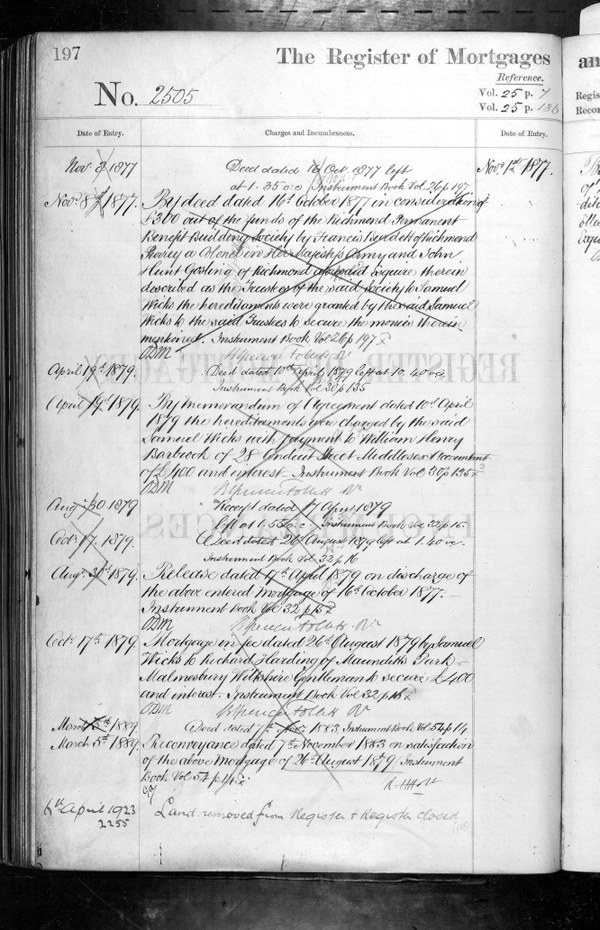 197
The Register of Mortgages
an
Reference.
No. 2505
Vol. 25 p. 7
Vol. 25 p. 136
Regis
Recor
Date of Entry.
Charges and Incumbrances.
Date of Entry.
Nov. 8 1877
Deed dated 16 Oct. 1877 left
Nov. 1st 1877.
at 1.35 o.c Instrument Book Vol. 26 p 197
Nov. 8th 1877.
By deed dated 16th October 1877 in consideration of
£300 out of the funds of the Richmond Permanent
Benefit Building Society by Francis Burdett of Richmond
Surrey a Colonel in Her Majesty's Army and John
Hunt Gosling of Richmond aforesaid Esquire therein
described as the Trustees of the said Society to Samuel
Wicks the hereditaments were granted by the said Samuel
Wicks to the said Trustees to secure the monies therein
mentioned. Instrument Book Vol 26 p 197
April 19th 1879.
Deed dated 10th April 1879 left at 10.40 o.c.
Instrument Book Vol 30 p 135
April 19th 1879.
By memorandum of Agreement dated 10th April
1879 the hereditaments were charged by the said
Samuel Wicks with payment to William Henry
Barbrook of 28 Conduit Street Middlesex Accountant
of £400 and interest - Instrument Book Vol 30 p 135
Aug. 30 1879
Receipt dated 17 April 1879
left at 1.55 o.c Instrument Book Vol. 32 p 15
Oct. 17. 1879.
Deed dated 26th August 1879 left at 1.40 o.c.
Instrument Book Vol. 32 p 16
Aug. 30th 1879.
Release dated 17th April 1879 on discharge of
the above entered Mortgage of 16th October 1877. -
Instrument Book Vol 32 p 15
Oct. 17th 1879.
Mortgage in fee dated 26th August 1879 by Samuel
Wicks to Richard Harding of Maunditts Park
Malmesbury Wiltshire Gentleman to secure £400
and interest. Instrument Book Vol 32 p 16
March 5th 1889.
Deed dated 7th Nov. 1883 Instrument Book Vol 54 p 14
March 5th 1889.
Reconveyance dated 7th November 1883 on satisfaction
of the above Mortgage of 26th August 1879 Instrument
Book Vol 54 p 14
6th April 1923
2255
Land removed from Register & Register closed